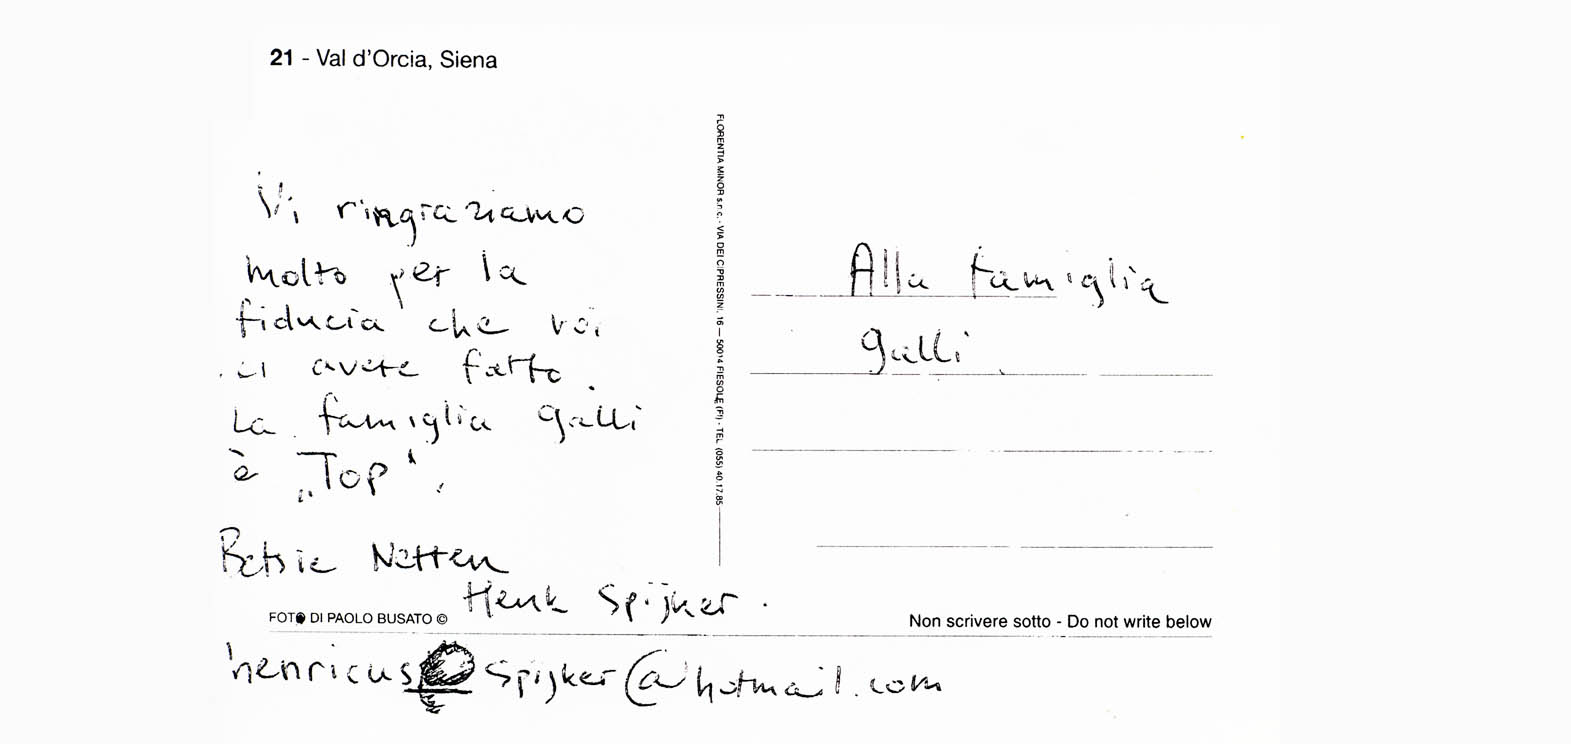 21 - Val d'Orcia, Siena
Vi ringraziamo
molto per la
fiducia che voi
ci avete fatto.
La famiglia Galli
è „Top“.
Betsie Netten
Henk Spijker.
FOTO DI PAOLO BUSATO ©
henricus_spijker@hotmail.com
FLORENTIA MINOR s.n.c. - VIA DEI CIPRESSINI, 16 — 50014 FIESOLE (FI) - TEL. (055) 40.17.85
Alla famiglia
Galli
Non scrivere sotto - Do not write below